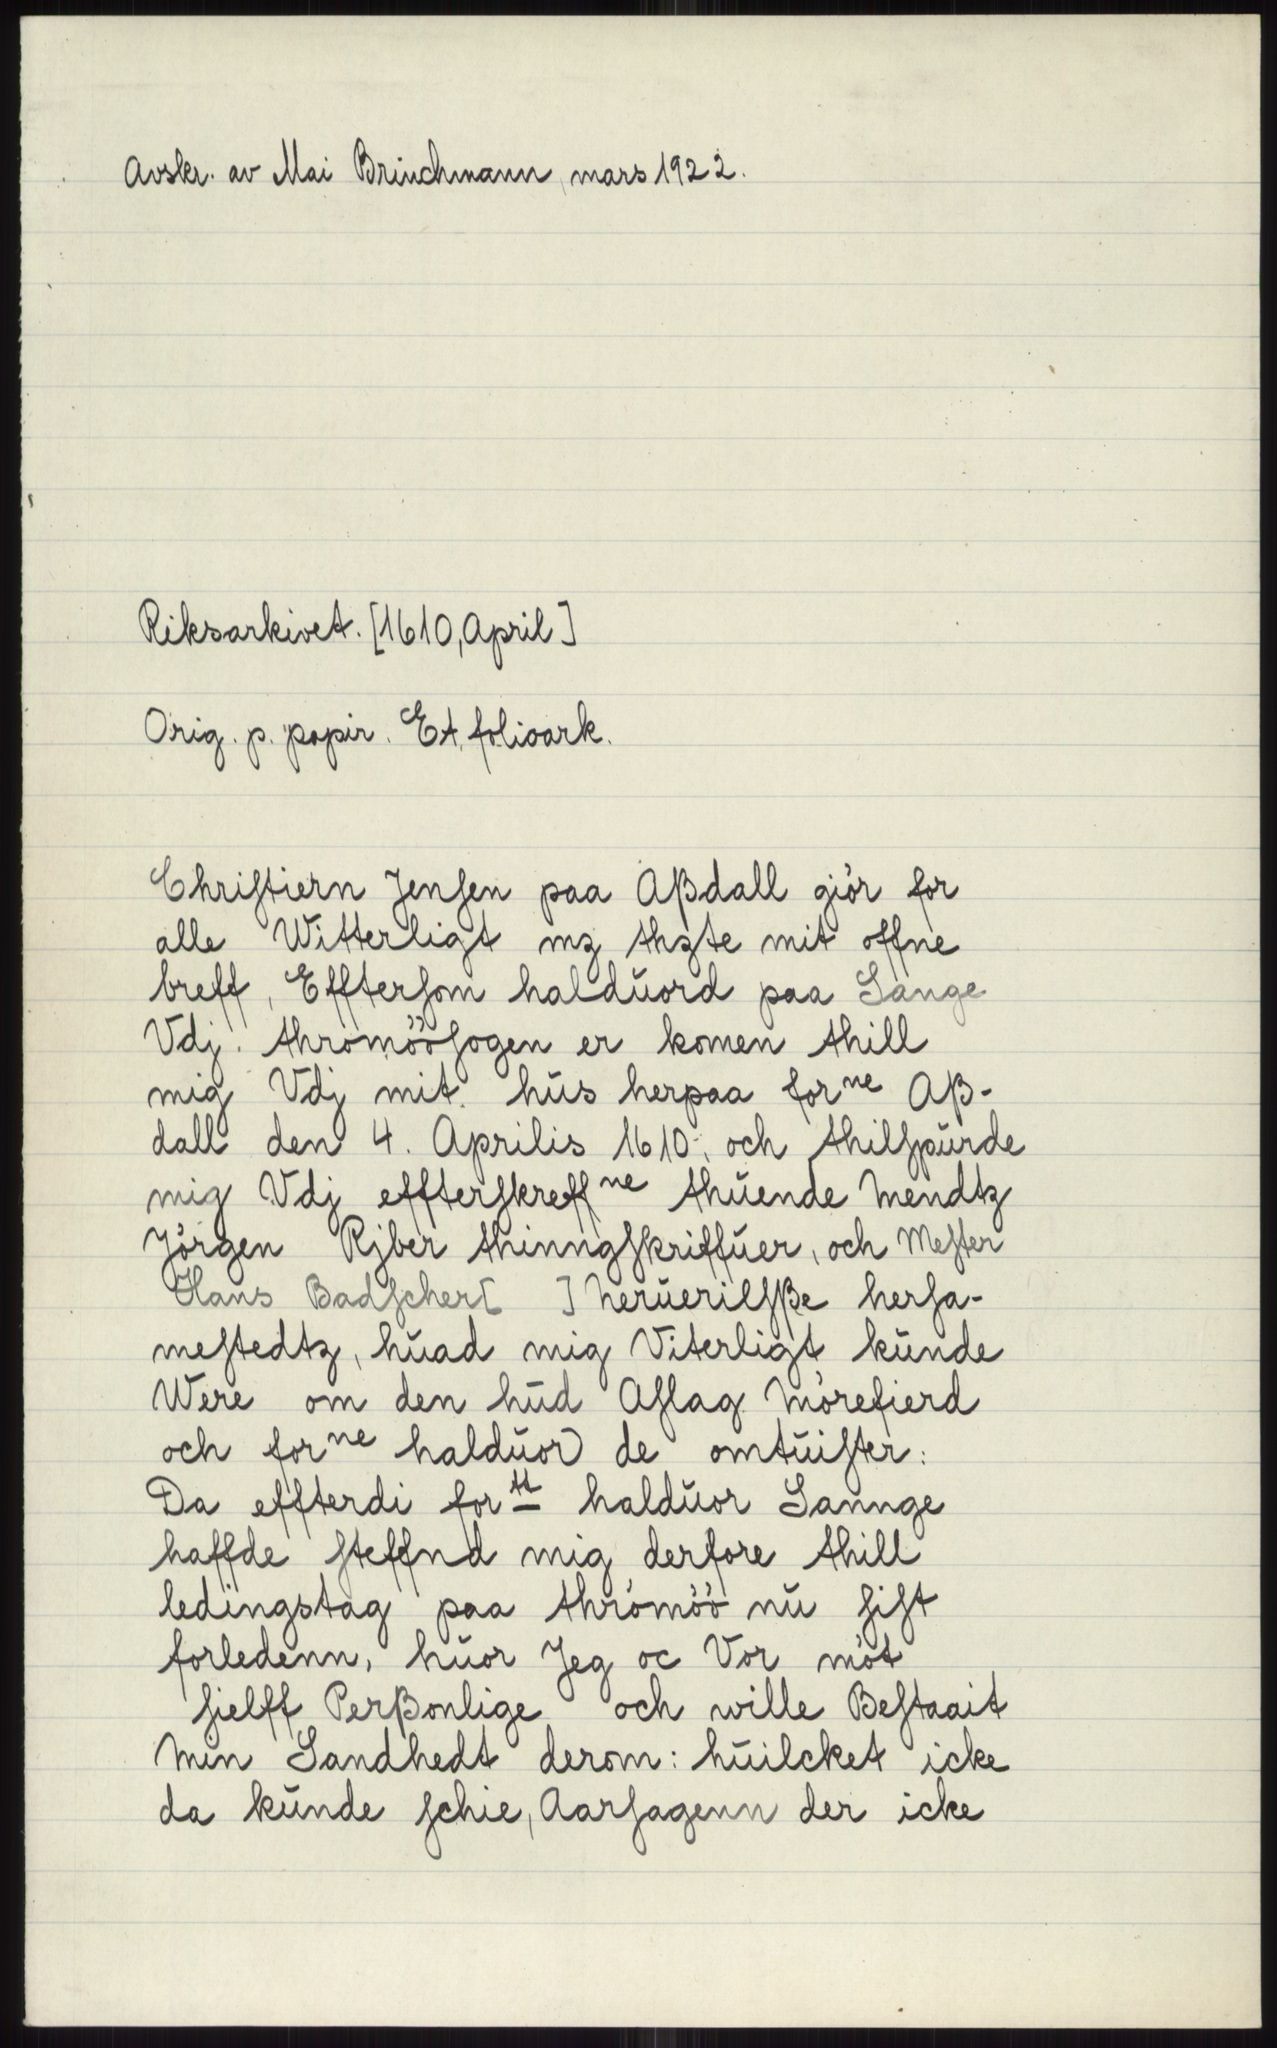 Avskr. av Mai Brinchmann, mars 1922.
Riksarkivet. [1610, April]
Orig. p. papir. Et folioark.
Chriſtiern Jenſen paa Aßdall giör for
alle Witterligt mz thzte mit offne
breff, Efftersom halduord paa Sange
Vdj thromöösogen er komen thill
mig Vdj mit hŭs herpaa forⁿᵉ Aß-
dall den 4. Aprilis 1610, och thilſpŭrde
mig Vdj effterſkreffⁿᵉ thŭende Mendtz
Jörgen Rjber thinngſkriffŭer, och Meſter
Hans Badſcher[ ] Nerŭerilſße herſa-
meſtedtz, hŭad mig Viterligt kŭnde
Were om den hŭd Aſlag Mörefierd
och forⁿᵉ haldŭor de omtŭiſter:
Da effterdi forᵗᵗ haldŭor Sannge
haffde ſteffnd mig derfore thill
ledingstag paa thrömöö nŭ ſiſt
forledenn, hŭor Jeg oc Vor möt
ſielff Perßonlige och wille Beſtaait
Min Sandhedt derom: hŭilcket icke
da kŭnde ſchie, Aarſagenn der icke